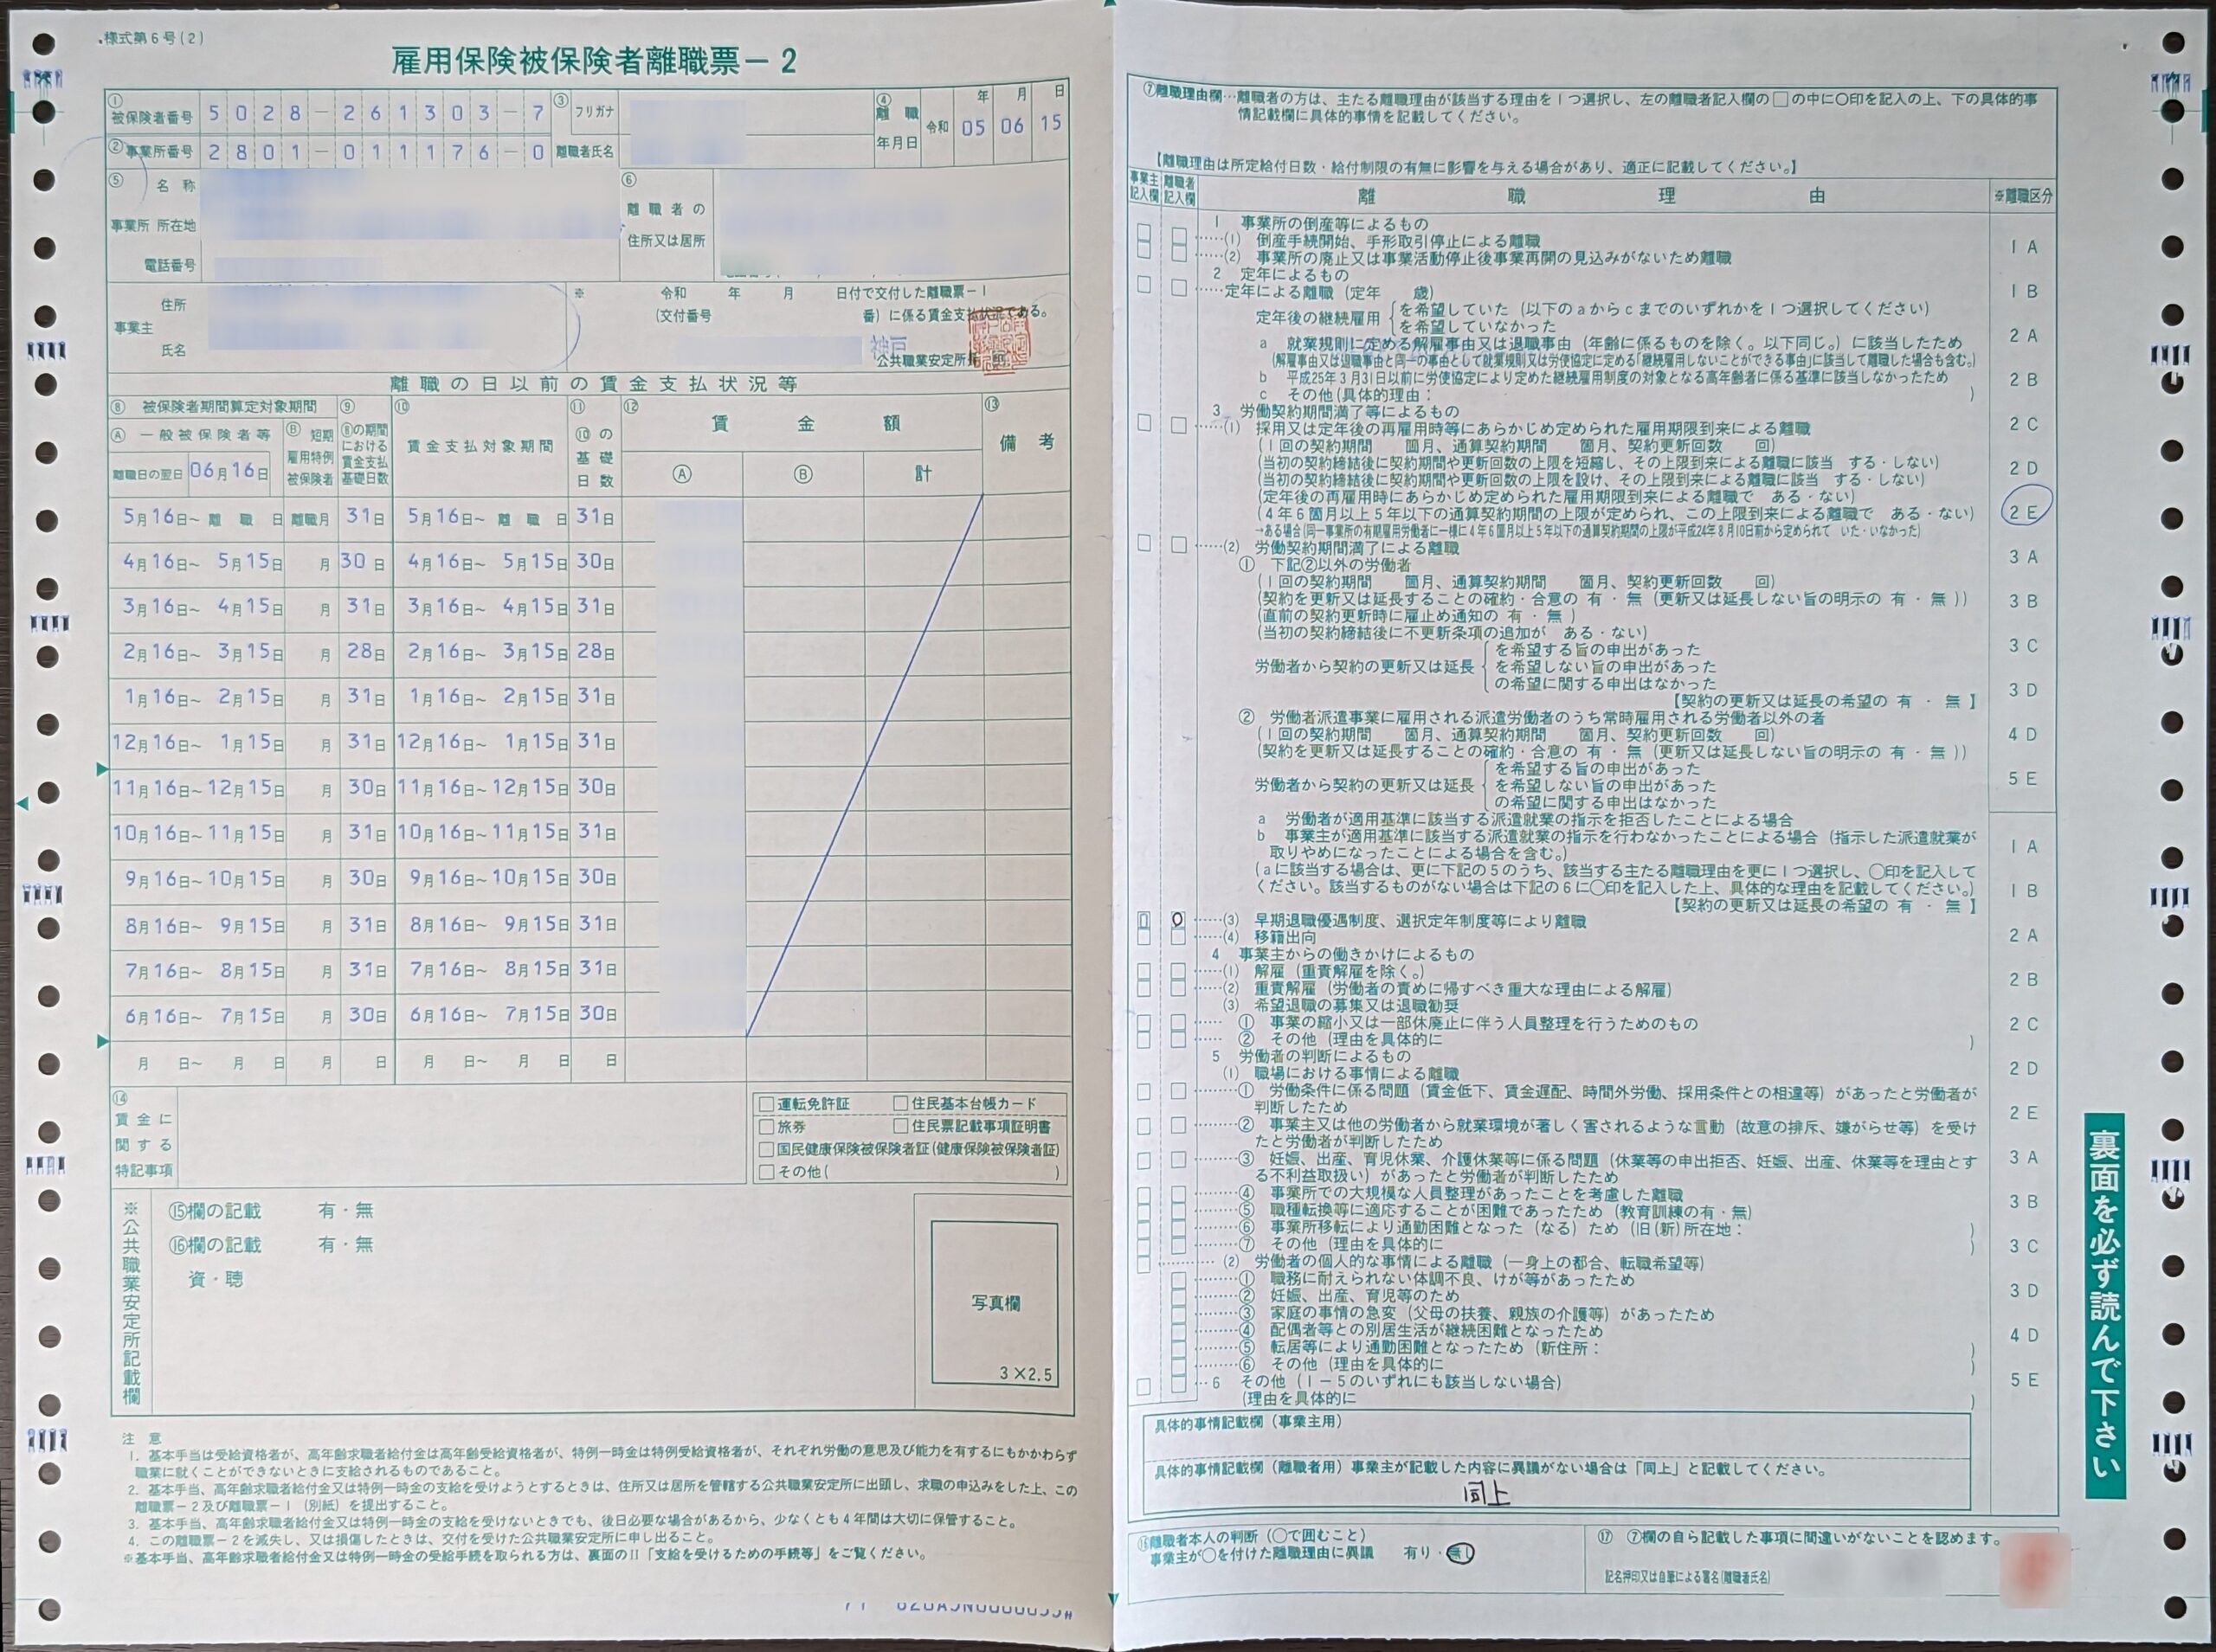 様式第6号(2)
雇用保険被保険者離職票－2
① 被保険者番号 5028-261303-7 ③ フリガナ ④ 離職年月日 令和 05年 06月 15日
② 事業所番号 2801-011176-0 離職者氏名
⑤ 名称 ⑥ 離職者の
事業所 所在地 住所又は居所
電話番号
住所 ※ 令和 年 月 日付で交付した離職票－1
事業主 (交付番号 番)に係る賃金支払状況である。
氏名 神戸 公共職業安定所長
離職の日以前の賃金支払状況等
⑧ 被保険者期間算定対象期間 ⑨ ⑧の期間における賃金支払基礎日数 ⑩ 賃金支払対象期間 ⑪ ⑩の基礎日数 ⑫ 賃金額 ⑬ 備考
Ⓐ 一般被保険者等 Ⓑ 短期雇用特例被保険者 Ⓐ Ⓑ 計
離職日の翌日 06月16日
5月16日～離職日 離職月 31日 5月16日～離職日 31日
4月16日～5月15日 月 30日 4月16日～5月15日 30日
3月16日～4月15日 月 31日 3月16日～4月15日 31日
2月16日～3月15日 月 28日 2月16日～3月15日 28日
1月16日～2月15日 月 31日 1月16日～2月15日 31日
12月16日～1月15日 月 31日 12月16日～1月15日 31日
11月16日～12月15日 月 30日 11月16日～12月15日 30日
10月16日～11月15日 月 31日 10月16日～11月15日 31日
9月16日～10月15日 月 30日 9月16日～10月15日 30日
8月16日～9月15日 月 31日 8月16日～9月15日 31日
7月16日～8月15日 月 31日 7月16日～8月15日 31日
6月16日～7月15日 月 30日 6月16日～7月15日 30日
月 日～ 月 日 月 日 月 日～ 月 日 日
⑭ 賃金に関する特記事項
□運転免許証 □住民基本台帳カード
□旅券 □住民票記載事項証明書
□国民健康保険被保険者証(健康保険被保険者証)
□その他( )
※公共職業安定所記載欄
⑮欄の記載 有・無
⑯欄の記載 有・無
資・聴
写真欄
3×2.5
注意
1. 基本手当は受給資格者が、高年齢求職者給付金は高年齢受給資格者が、特例一時金は特例受給資格者が、それぞれ労働の意思及び能力を有するにもかかわらず
職業に就くことができないときに支給されるものであること。
2. 基本手当、高年齢求職者給付金又は特例一時金の支給を受けようとするときは、住所又は居所を管轄する公共職業安定所に出頭し、求職の申込みをした上、この
離職票－2及び離職票－1(別紙)を提出すること。
3. 基本手当、高年齢求職者給付金又は特例一時金の支給を受けないときでも、後日必要な場合があるから、少なくとも4年間は大切に保管すること。
4. この離職票－2を滅失し、又は損傷したときは、交付を受けた公共職業安定所に申し出ること。
※基本手当、高年齢求職者給付金又は特例一時金の受給手続を取られる方は、裏面のII「支給を受けるための手続等」をご覧ください。
⑦離職理由欄…離職者の方は、主たる離職理由が該当する理由を1つ選択し、左の離職者記入欄の□の中に○印を記入の上、下の具体的事
情記載欄に具体的事情を記載してください。
【離職理由は所定給付日数・給付制限の有無に影響を与える場合があり、適正に記載してください。】
事業主記入欄 離職者記入欄 離職理由 ※離職区分
1 事業所の倒産等によるもの
□ □ ……(1) 倒産手続開始、手形取引停止による離職 1A
□ □ ……(2) 事業所の廃止又は事業活動停止後事業再開の見込みがないため離職
2 定年によるもの
□ □ ……定年による離職(定年 歳) 1B
定年後の継続雇用 {を希望していた(以下のaからcまでのいずれかを1つ選択してください)
を希望していなかった
a 就業規則に定める解雇事由又は退職事由(年齢に係るものを除く。以下同じ。)に該当したため 2A
(解雇事由又は退職事由と同一の事由として就業規則又は労使協定に定める「継続雇用しないことができる事由」に該当して離職した場合も含む。)
b 平成25年3月31日以前に労使協定により定めた継続雇用制度の対象となる高年齢者に係る基準に該当しなかったため 2B
c その他(具体的理由： )
3 労働契約期間満了等によるもの
□ □ ……(1) 採用又は定年後の再雇用時等にあらかじめ定められた雇用期限到来による離職 2C
(1回の契約期間 箇月、通算契約期間 箇月、契約更新回数 回)
(当初の契約締結後に契約期間や更新回数の上限を短縮し、その上限到来による離職に該当 する・しない) 2D
(当初の契約締結後に契約期間や更新回数の上限を設け、その上限到来による離職に該当 する・しない)
(定年後の再雇用時にあらかじめ定められた雇用期限到来による離職で ある・ない)
(4年6箇月以上5年以下の通算契約期間の上限が定められ、この上限到来による離職で ある・ない) 2E
→ある場合(同一事業所の有期雇用労働者に一様に4年6箇月以上5年以下の通算契約期間の上限が平成24年8月10日前から定められて いた・いなかった)
□ □ ……(2) 労働契約期間満了による離職 3A
① 下記②以外の労働者
(1回の契約期間 箇月、通算契約期間 箇月、契約更新回数 回)
(契約を更新又は延長することの確約・合意の 有・無(更新又は延長しない旨の明示の 有・無)) 3B
(直前の契約更新時に雇止め通知の 有・無)
(当初の契約締結後に不更新条項の追加が ある・ない)
{を希望する旨の申出があった 3C
労働者から契約の更新又は延長 を希望しない旨の申出があった
の希望に関する申出はなかった 3D
【契約の更新又は延長の希望の 有・無】
② 労働者派遣事業に雇用される派遣労働者のうち常時雇用される労働者以外の者
(1回の契約期間 箇月、通算契約期間 箇月、契約更新回数 回) 4D
(契約を更新又は延長することの確約・合意の 有・無(更新又は延長しない旨の明示の 有・無))
{を希望する旨の申出があった
労働者から契約の更新又は延長 を希望しない旨の申出があった 5E
の希望に関する申出はなかった
a 労働者が適用基準に該当する派遣就業の指示を拒否したことによる場合
b 事業主が適用基準に該当する派遣就業の指示を行わなかったことによる場合(指示した派遣就業が
取りやめになったことによる場合を含む。) 1A
(aに該当する場合は、更に下記の5のうち、該当する主たる離職理由を更に1つ選択し、○印を記入して
ください。該当するものがない場合は下記の6に○印を記入した上、具体的な理由を記載してください。) 1B
【契約の更新又は延長の希望の 有・無】
0 ○ ……(3) 早期退職優遇制度、選択定年制度等により離職
□ □ ……(4) 移籍出向 2A
4 事業主からの働きかけによるもの
□ □ ……(1) 解雇(重責解雇を除く。)
□ □ ……(2) 重責解雇(労働者の責めに帰すべき重大な理由による解雇) 2B
(3) 希望退職の募集又は退職勧奨
□ □ …… ① 事業の縮小又は一部休廃止に伴う人員整理を行うためのもの 2C
□ □ …… ② その他(理由を具体的に )
5 労働者の判断によるもの
(1) 職場における事情による離職 2D
□ □ ……① 労働条件に係る問題(賃金低下、賃金遅配、時間外労働、採用条件との相違等)があったと労働者が
判断したため 2E
□ □ ……② 事業主又は他の労働者から就業環境が著しく害されるような言動(故意の排斥、嫌がらせ等)を受け
たと労働者が判断したため
□ □ ……③ 妊娠、出産、育児休業、介護休業等に係る問題(休業等の申出拒否、妊娠、出産、休業等を理由とす 3A
る不利益取扱い)があったと労働者が判断したため
□ □ ……④ 事業所での大規模な人員整理があったことを考慮した離職 3B
□ □ ……⑤ 職種転換等に適応することが困難であったため(教育訓練の有・無)
□ □ ……⑥ 事業所移転により通勤困難となった(なる)ため(旧(新)所在地： )
□ □ ……⑦ その他(理由を具体的に ) 3C
□ ……(2) 労働者の個人的な事情による離職(一身上の都合、転職希望等)
□ ……① 職務に耐えられない体調不良、けが等があったため
□ ……② 妊娠、出産、育児等のため 3D
□ ……③ 家庭の事情の急変(父母の扶養、親族の介護等)があったため
□ ……④ 配偶者等との別居生活が継続困難となったため 4D
□ ……⑤ 転居等により通勤困難となったため(新住所： )
□ ……⑥ その他(理由を具体的に )
□ □ …6 その他(1－5のいずれにも該当しない場合) 5E
(理由を具体的に )
具体的事情記載欄(事業主用)
具体的事情記載欄(離職者用)事業主が記載した内容に異議がない場合は「同上」と記載してください。
同上
⑯離職者本人の判断(○で囲むこと)
事業主が○を付けた離職理由に異議 有り・無し
⑰ ⑦欄の自ら記載した事項に間違いがないことを認めます。
記名押印又は自筆による署名(離職者氏名)
裏面を必ず読んで下さい